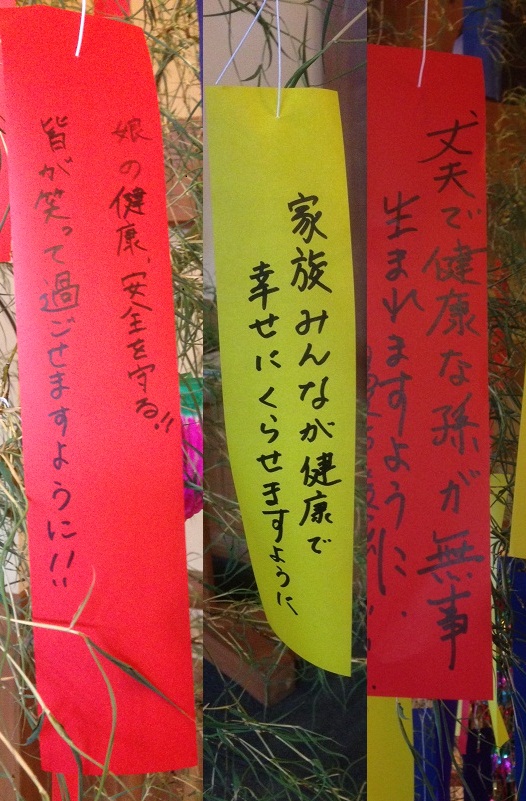 娘の健康、安全を守る!!
皆が笑って過ごせますように!!
家族みんなが健康で
幸せにくらせますように
丈夫で健康な孫が無事
生まれますように.